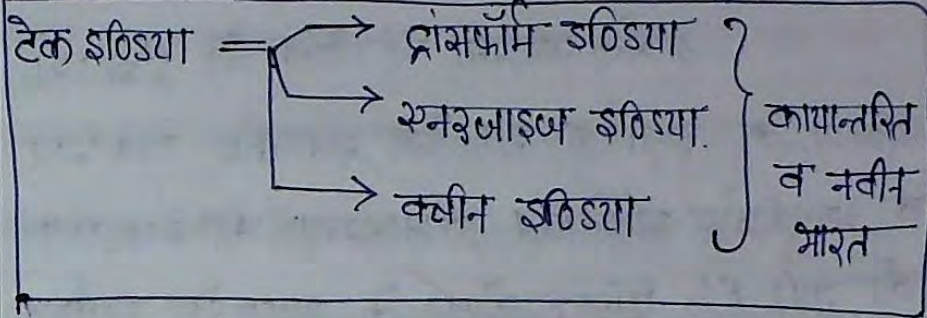 टेक इण्डिया = → ट्रांसफॉर्म इण्डिया
→ एनरजाइज इण्डिया.
→ क्लीन इण्डिया
} कायान्तरित
व नवीन
भारत